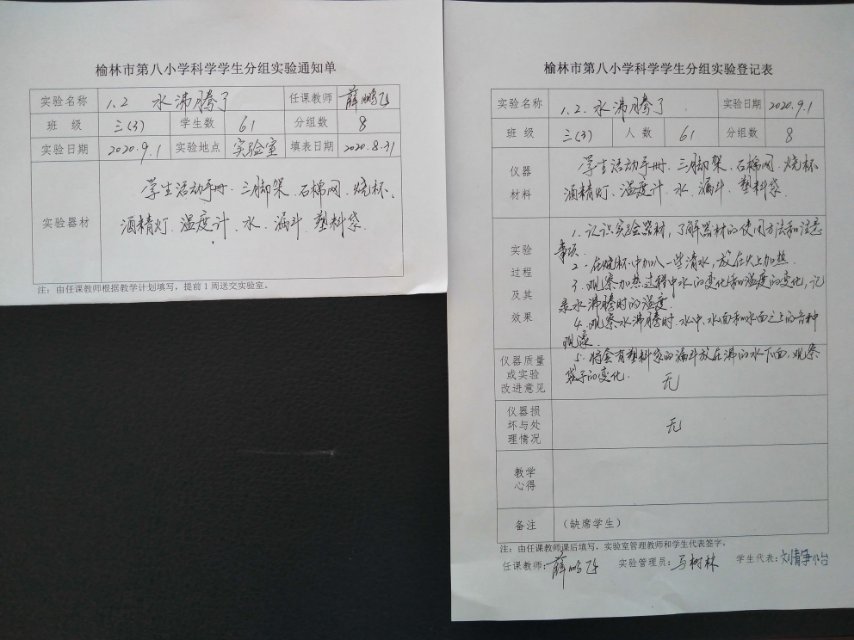 榆林市第八小学科学学生分组实验通知单
实验名称 1.2 水沸腾了 任课教师 薛鹏飞
班 级 三(3) 学生数 61 分组数 8
实验日期 2020.9.1 实验地点 实验室 填表日期 2020.8.31
实验器材 学生活动手册、三脚架、石棉网、烧杯、
酒精灯、温度计、水、漏斗、塑料袋.
注：由任课教师根据教学计划填写，提前1周送交实验室。
榆林市第八小学科学学生分组实验登记表
实验名称 1.2.水沸腾了. 实验日期 2020.9.1
班 级 三(3) 人 数 61 分组数 8
仪器
材料
学生活动手册、三脚架、石棉网、烧杯
酒精灯、温度计、水、漏斗、塑料袋.
实验
过程
及其
效果
1.认识实验器材，了解器材的使用方法和注意
事项.
2.在烧杯中加入一些清水，放在火上加热.
3.观察加热过程中水的变化和温度的变化，记
录水沸腾时的温度
4.观察水沸腾时，水中、水面和水面之上的各种
现象.
5.将套有塑料袋的漏斗放在沸的水下面，观察
袋子的变化.
仪器质量
或实验
改进意见
无
仪器损
坏与处
理情况
无
教学
心得
备注 （缺席学生）
注：由任课教师课后填写，实验室管理教师和学生代表签字。
任课教师：薛鹏飞 实验管理员：马树林 学生代表：